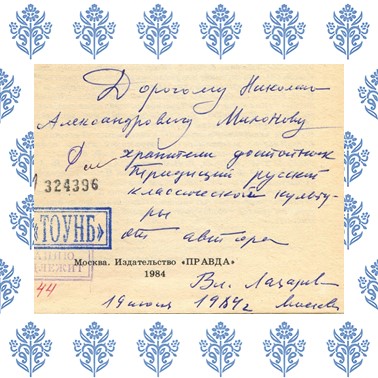 Дорогому Николаю
Александровичу Миронову
хранителю достойных
традиций русской
классической культу-
ры
324396
«ТОУНБ»
от автора
ЛЕЖИТ
Москва. Издательство «ПРАВДА»
1984
44
Вл. Лазарев
19 июля 1984 г Москва